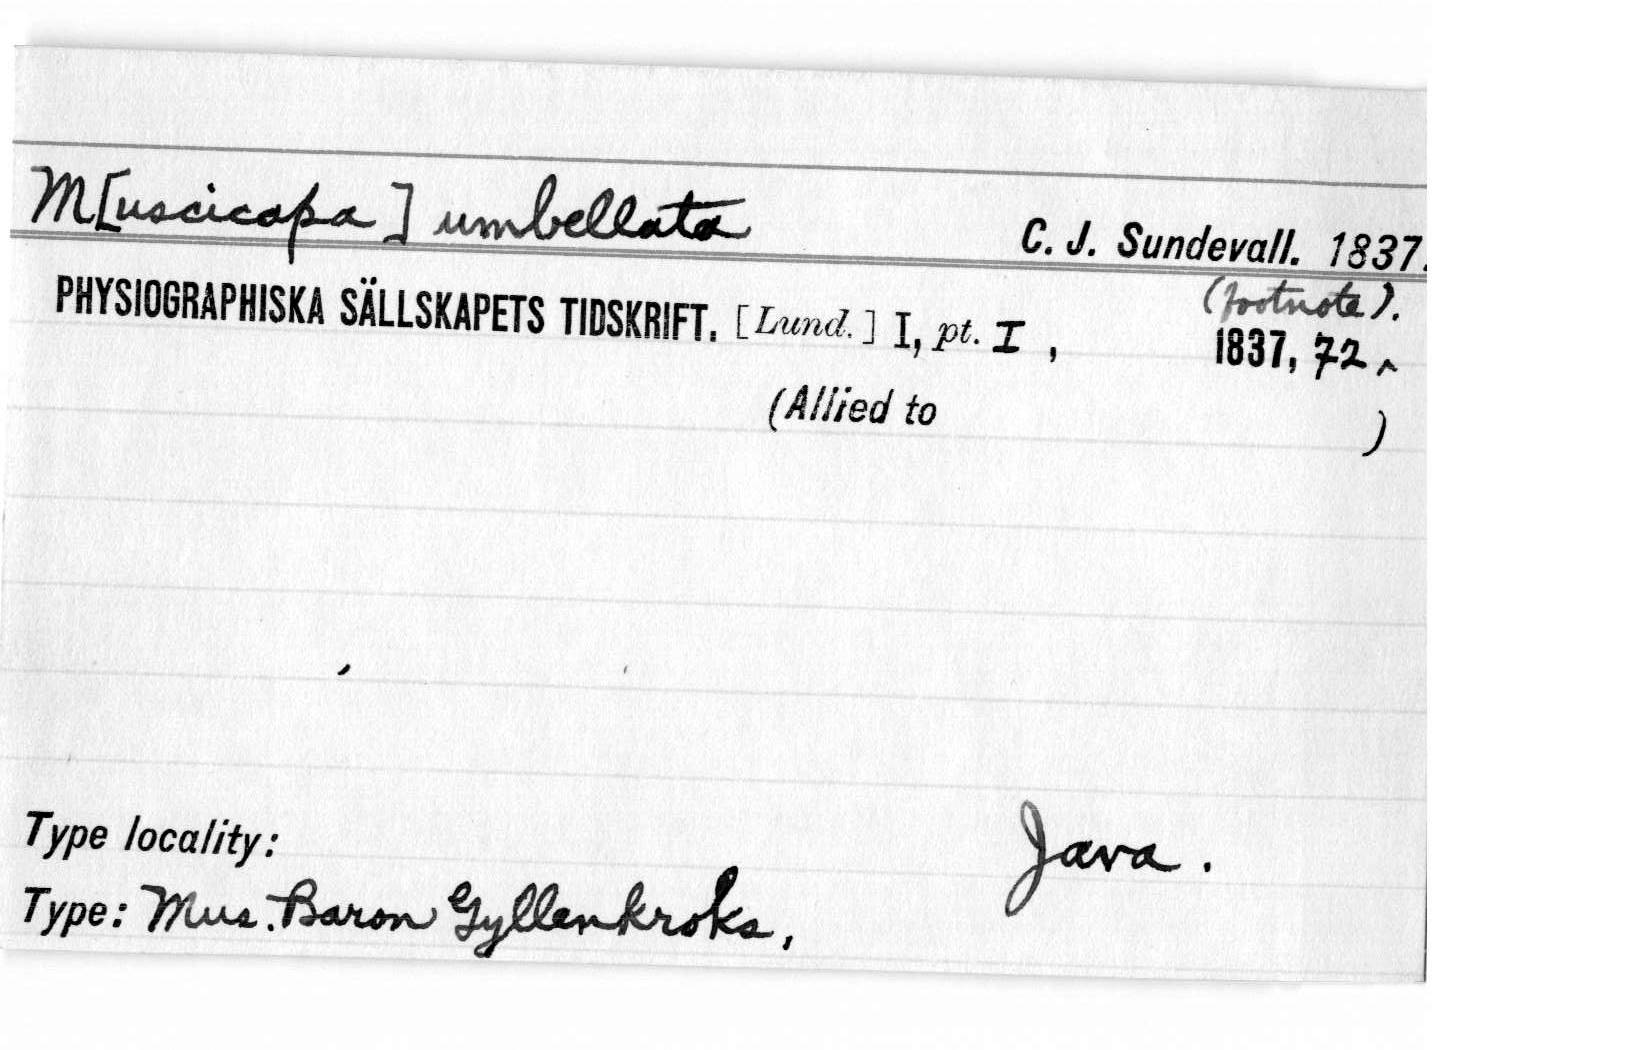 M[uscicapa] umbellata C. J. Sundevall. 1837.
(footnote).
PHYSIOGRAPHISKA SÄLLSKAPETS TIDSKRIFT. [Lund.] I, pt. I , 1837, 72.
(Allied to )
Type locality: Java.
Type: Mus. Baron Gyllenkroks,